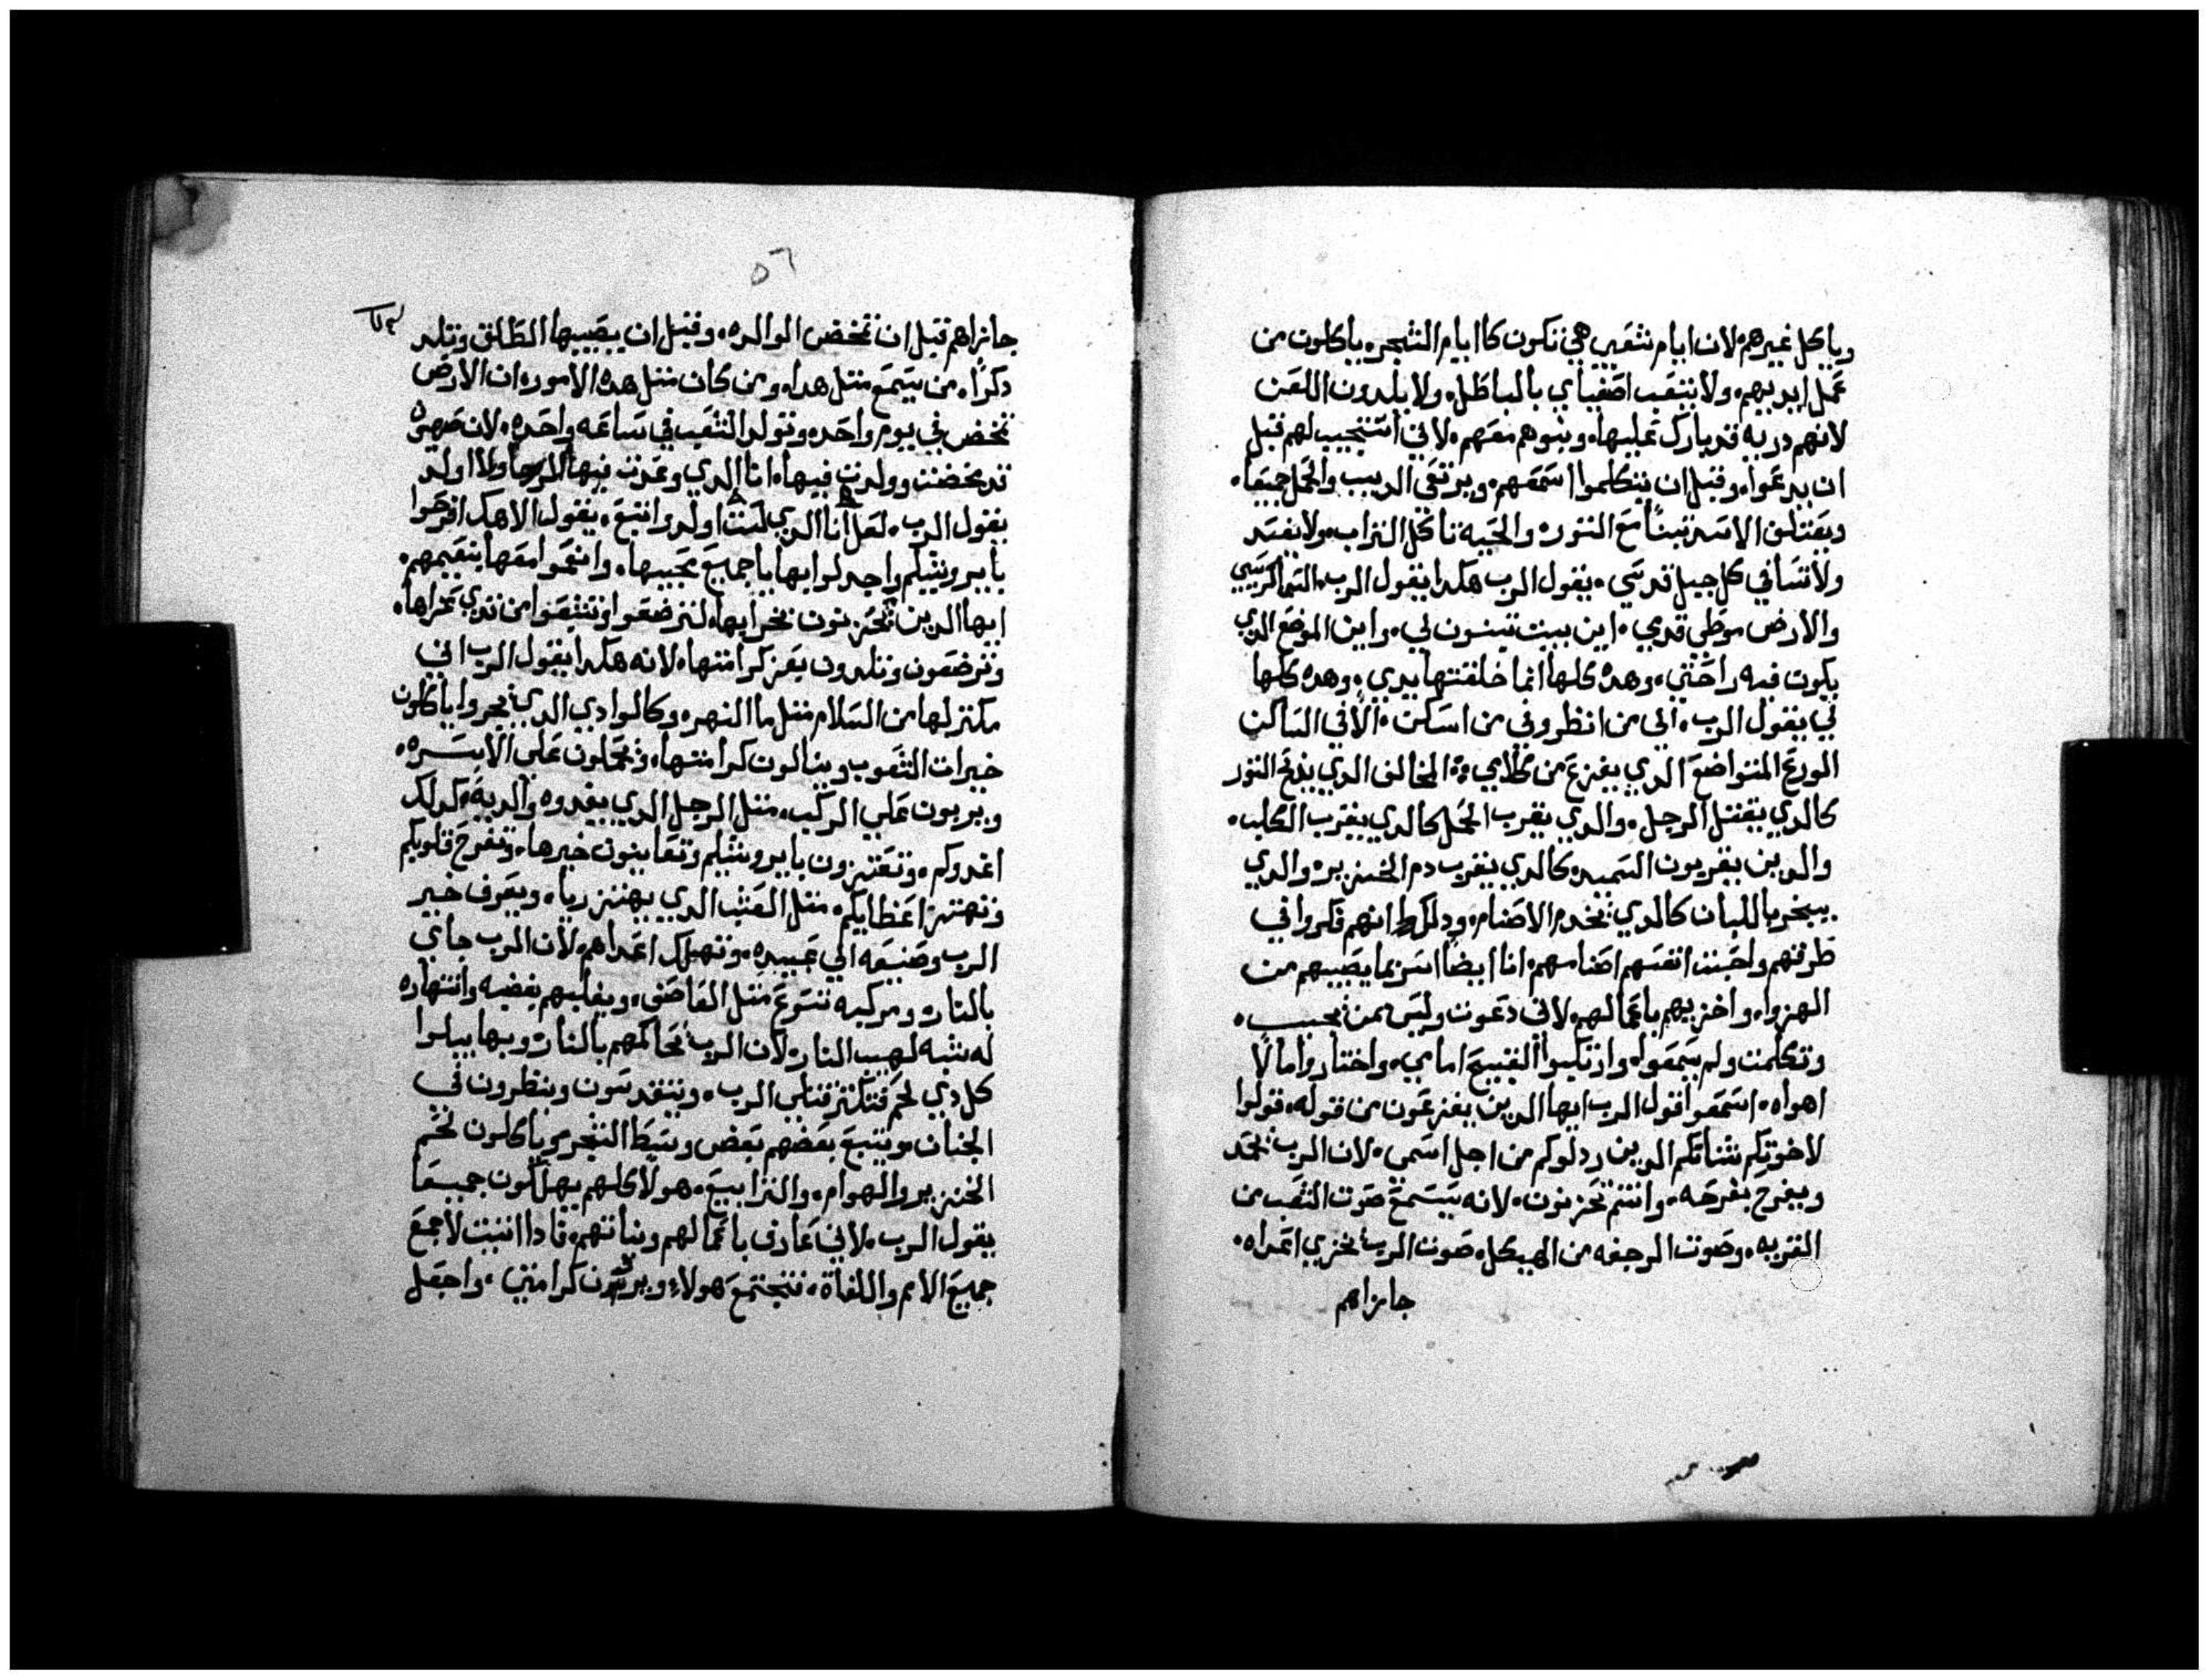 وياكل غيرهم لان ايام شعبي هي تكون كاايام الشجره ياكلون من
عمل ايديهم ولا يتعب اصفياي بالباطل ولا يلدون اللعن
لانهم دريه قد بارك عليها وبنوهم معهم لاني استجيب لهم قبل
ان يدعوا وقبل ان يتكلموا اسمعهم ويرتعي الديب والحمل جميعا
ويعتلف الاسد تبنا مع التور والحيه تاكل التراب ولا يفسد
ولا نسا في كل جبل قدسي يقول الرب هكدا يقول الرب السما كرسيي
والارض موطى قدمي اين بيت تبنون لي واين الموضع الدي
يكون فيه راحتي وهده كلها انما خلقتها يدي وهده كلها
لي يقول الرب الى من انظر وفي من اسكن الا في الساكن
الورع المتواضع الدي يفزع من كلامي المخالف الدي يدبح التور
كالدي يقتل الرجل والدي يقرب الحمل كالدي يقرب الكلب
والدين يقربون السميد كالدي يقرب دم الخنزير والدي
يبخر باللبان كالدي يخدم الاصنام ودلك انهم فكروا في
طرقهم واحبت انفسهم اصنامهم انا ايضا اسر بما يصيبهم من
الهزوا واخزيهم باعمالهم لانى دعوت وليس من يجيب
وتكلمت ولم يسمعوا وارتكبوا القبيح امامي واختاروا ما لا
اهواه اسمعوا قول الرب ايها الدين يفزعون من قوله قولوا
لاخوتكم شناتكم الدين ردلوكم من اجل اسمي لان الرب يمجد
ويفرح بفرحه وانتم تحزنون لانه يسمع صوت الشعب من
القريه وصوت الرجفه من الهيكل صوت الرب يخزي اعداه
جازاهم
٥٦
جازاهم قبل ان تمخض الوالده وقبل ان يصيبها الطلق وتلد
دكرا من يسمع متل هدا ومن كان متل هده الامور ان الارض
تمخض في يوم واحد وتولد الشعب في ساعه واحده لان صهيون
قد تمخضت وولدت فيها انا الدي وعدت فيها ولا اولد
يقول الرب لعل انا الدي لست اولد وانتبع يقول الاهك افرحوا
يايروشليم واجدلوا بها يا جميع محبيها وانعموا معها بنعيمهم
ايها الدين تحزنون بخرابها لترضعوا وتشبعوا من تدي عزاها
وترضعون وتلدون بعز كرامتها لانه هكدا يقول الرب اني
مكتر لها من السلام متل ما النهر وكالوادي الدي يجروا ياكلون
خيرات الشعوب وينالون كرامتها وتحملون على الاسره
ويربون علي الركب متل الرجل الدي يغدوه والديه كدلك
اغدوكم وتعتزون بايروشليم وتعاينون خيرها وتفرح قلوبكم
وتهتز اعظايكم متل العشب الدي يهتز ريا ويعرف خير
الرب وصنيعه الي عبيده وتهلك اعداهم لان الرب جاي
بالنار ومركبه تسرع متل العاصف ويقلبهم بغضبه وانتهاره
له شبه لهيب النار لان الرب يحاكمهم بالنار وبها يبلوا
كل دي لحم فتكتر قتلى الرب ويتقدسون وينظرون في
الجنان ويتبع بعضهم بعض وسط الشجر وياكلون لحم
الخنزير والهوام والنرابيع هولا كلهم يهلكون جميعا
يقول الرب لاني عارف باعمالهم ونياتهم فادا اتيت لاجمع
جميع الامم واللغاة فتجتمع هولاء ويرون كرامتي واجعل